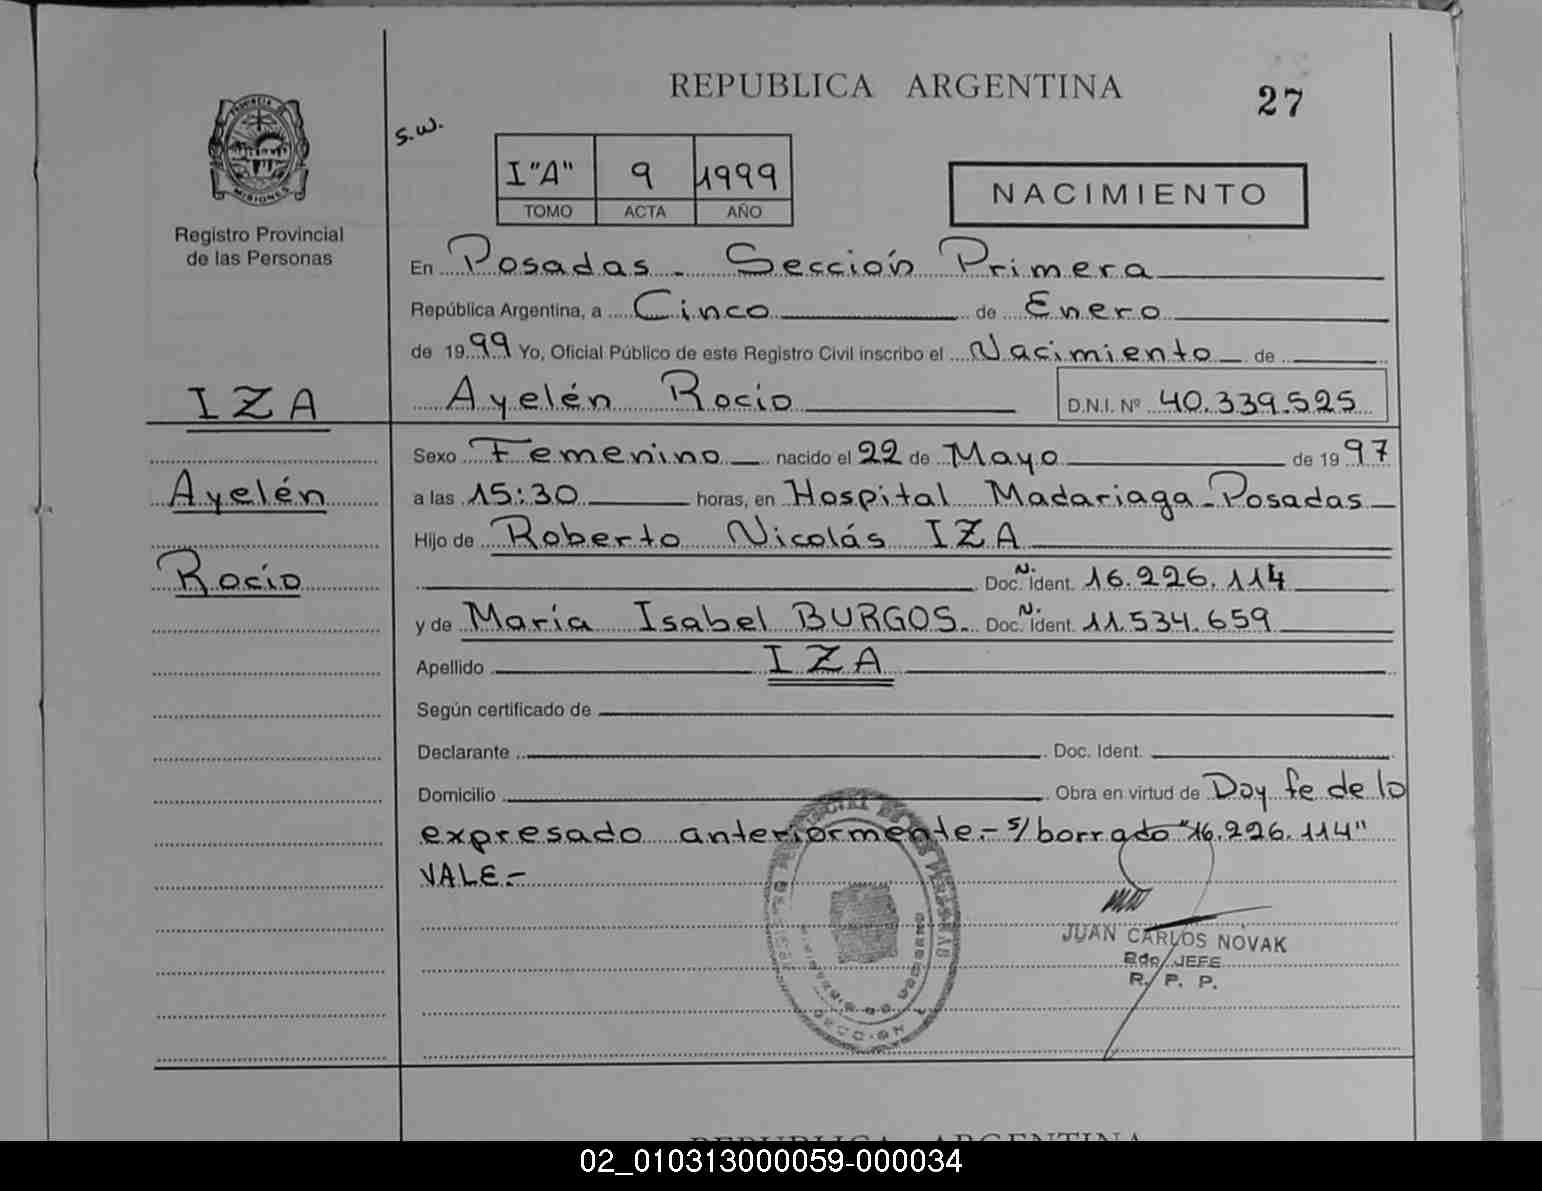 REPUBLICA ARGENTINA
27
s.w.
I "A" 9 1999
TOMO ACTA AÑO
NACIMIENTO
MISIONES
Registro Provincial
de las Personas
En Posadas - Sección Primera
República Argentina, a Cinco de Enero
de 1999 Yo, Oficial Público de este Registro Civil inscribo el Nacimiento de
IZA
Ayelén Rocio D.N.I. Nº 40.339.525
Sexo Femenino nacido el 22 de Mayo de 1997
Ayelén
a las 15:30 horas, en Hospital Madariaga - Posadas
Hijo de Roberto Nicolás IZA
Rocio
Doc. N. Ident. 16.226.114
y de María Isabel BURGOS. Doc. N. Ident. 11.534.659
Apellido IZA
Según certificado de
Declarante Doc. Ident.
Domicilio Obra en virtud de Doy fe de lo
expresado anteriormente.- s/borrado "16.226.114"
VALE.-
JUAN CARLOS NOVAK
JEFE
R. P. P.
REPUBLICA ARGENTINA
02_010313000059-000034